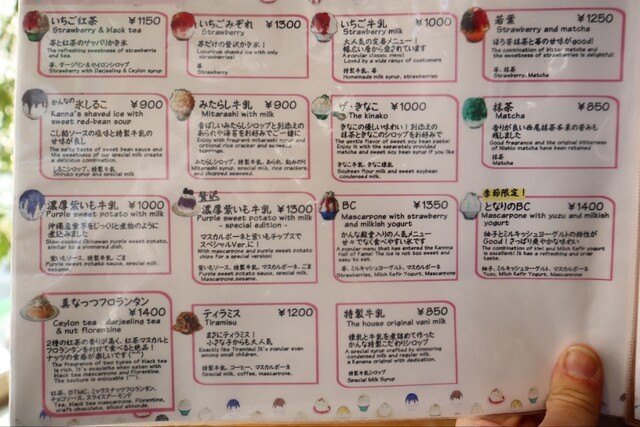 いちご紅茶 ¥1150
Strawberry & black tea
茶と紅茶のサッパリかき氷
The refreshing sweetness of strawberries and tea.
苺、ダージリン&セイロンシロップ
Strawberry with Darjeeling & Ceylon syrup
いちごみぞれ ¥1300
Strawberry
茶だけの贅沢かき氷!
Luxurious shaved ice with only strawberries!
苺
Strawberry
いちご牛乳 ¥1000
Strawberry with milk
大人気の定番メニュー!
幅広い層から愛されています
A popular classic menu!
Loved by a wide range of customers
特製牛乳、苺
Homemade milk syrup, strawberries
若葉 ¥1250
Strawberry and matcha
ほろ苦抹茶と苺の甘味がgood!
The combination of bitter matcha and the sweetness of strawberries is delightful!
苺、抹茶
Strawberry, Matcha
かんなの氷しるこ ¥900
Kanna's shaved ice with sweet red-bean soup
こし餡ソースの塩味と特製牛乳の
甘味が良し
The salty taste of sweet bean sauce and the sweetness of our special milk create a delicious combination.
しるこシロップ、特製牛乳
Shiruko syrup and special milk
みたらし牛乳 ¥900
Mitarashi with milk
香ばしいみたらしシロップと別添えの
あられや海苔をお好みでご一緒に
Enjoy with fragrant mitarashi syrup and optional rice cracker and seaweed toppings.
みたらしシロップ、特製牛乳、あられ、刻みのり
Mitarashi syrup, special milk, rice crackers, and chopped seaweed.
ザ・きなこ ¥1000
The kinako
きなこの優しい味わい!別添えの
抹茶ときなこのシロップをお好みで
The gentle flavor of sweet soy bean paste! Enjoy it with the separately provided matcha and sweet soy bean syrup if you like
きなこ牛乳、きなこ練乳
Soybean flour milk and sweet soybean condensed milk.
抹茶 ¥850
Matcha
香りが良い西尾抹茶本来の苦みも
残しました
Good fragrance and the original bitterness of Nishio matcha have been retained
抹茶
Matcha
濃厚紫いも牛乳 ¥1000
Purple sweet potato with milk
沖縄産紫芋をじっくりと煮詰めるように
煮込みました
Slow-cooked Okinawan purple sweet potato, similar to a simmered dish.
紫いもソース、特製牛乳、ごま
Purple sweet potato sauce, special milk, sesame
贅沢
濃厚紫いも牛乳 ¥1300
Purple sweet potato with milk - special edition -
マスカルポーネと紫いもチップスで
スペシャルVer.に!
With mascarpone and purple sweet potato chips for a special version!
紫いもソース、特製牛乳、マスカルポーネ、ごま
Purple sweet potato sauce, special milk, Mascarpone, sesame.
BC ¥1350
Mascarpone with strawberry and milkish yogurt
かんな殿堂入りの人気メニュー
甘々でなく食べやすい氷です
A popular menu that has entered the Kanna Hall of Fame! The ice is not too sweet and easy to eat.
苺、ミルキッシュヨーグルト、マスカルポーネ
Strawberries, Milch Kefir Yogurt, Mascarpone
季節限定!
となりのBC ¥1400
Mascarpone with yuzu and milkish yogurt
柚子とミルキッシュヨーグルトの相性が
Good!さっぱり爽やかな味わい
The combination of kiwi and Milch Kefir yogurt is excellent! It has a refreshing and crisp taste.
柚子、ミルキッシュヨーグルト、マスカルポーネ
Yuzu, Milch Kefir Yogurt, Mascarpone
真なっつフロランタン ¥1400
Ceylon tea, darjeeling tea & nut florentine
2種の紅茶の香りが高く、紅茶マスカルと
フロランタンを付けて食べると絶品!
ナッツの食感が楽しいです(^^)
The fragrance of two types of black tea is rich. It's exquisite when eaten with black tea mascarpone and Florentine. The texture is enjoyable (^^).
紅茶、BTMC、ミックスナッツフロランタン、
チョコソース、スライスアーモンド
Tea, black tea mascarpone, Florentine, craft chocolate, sliced almonds.
ティラミス ¥1200
Tiramisu
まさにティラミス!
小さな子からも大人気
Exactly like Tiramisu! It is popular even among small children.
特製牛乳、コーヒー、マスカルポーネ
Special milk, coffee, mascarpone.
特製牛乳 ¥850
The house original vani milk
練乳と牛乳を煮詰めて作った
かんな特製こだわりシロップ
A special syrup crafted by simmering condensed milk and regular milk, a Kanna original with dedication.
特製牛乳シロップ
Special Milk Syrup